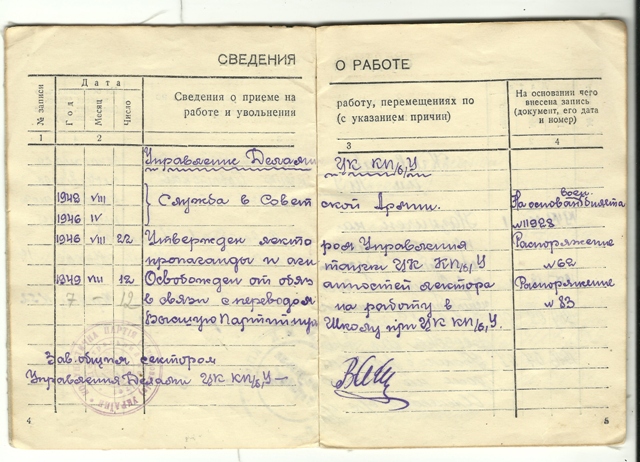 СВЕДЕНИЯ О РАБОТЕ
№ записи
Дата
Год
Месяц
Число
Сведения о приеме на работу, перемещениях по
работе и увольнения (с указанием причин)
На основании чего
внесена запись
(документ, его дата
и номер)
1 2 3 4
Управление Делами ЦК КП/б/У
1942 VIII } Служба в Советской Армии. На основ. воен. билета
1946 IV № 11928
1946 VIII 22 Утвержден лектором Управления Распоряжение
пропаганды и агитации ЦК КП/б/У № 62
1949 VII 12 Освобожден от обязанностей лектора Распоряжение
7 — 12 в связи с переводом на работу в № 83
Высшую Партийную Школу при ЦК КП/б/У.
Зав. общим сектором
Управления Делами ЦК КП/б/У —
4 5